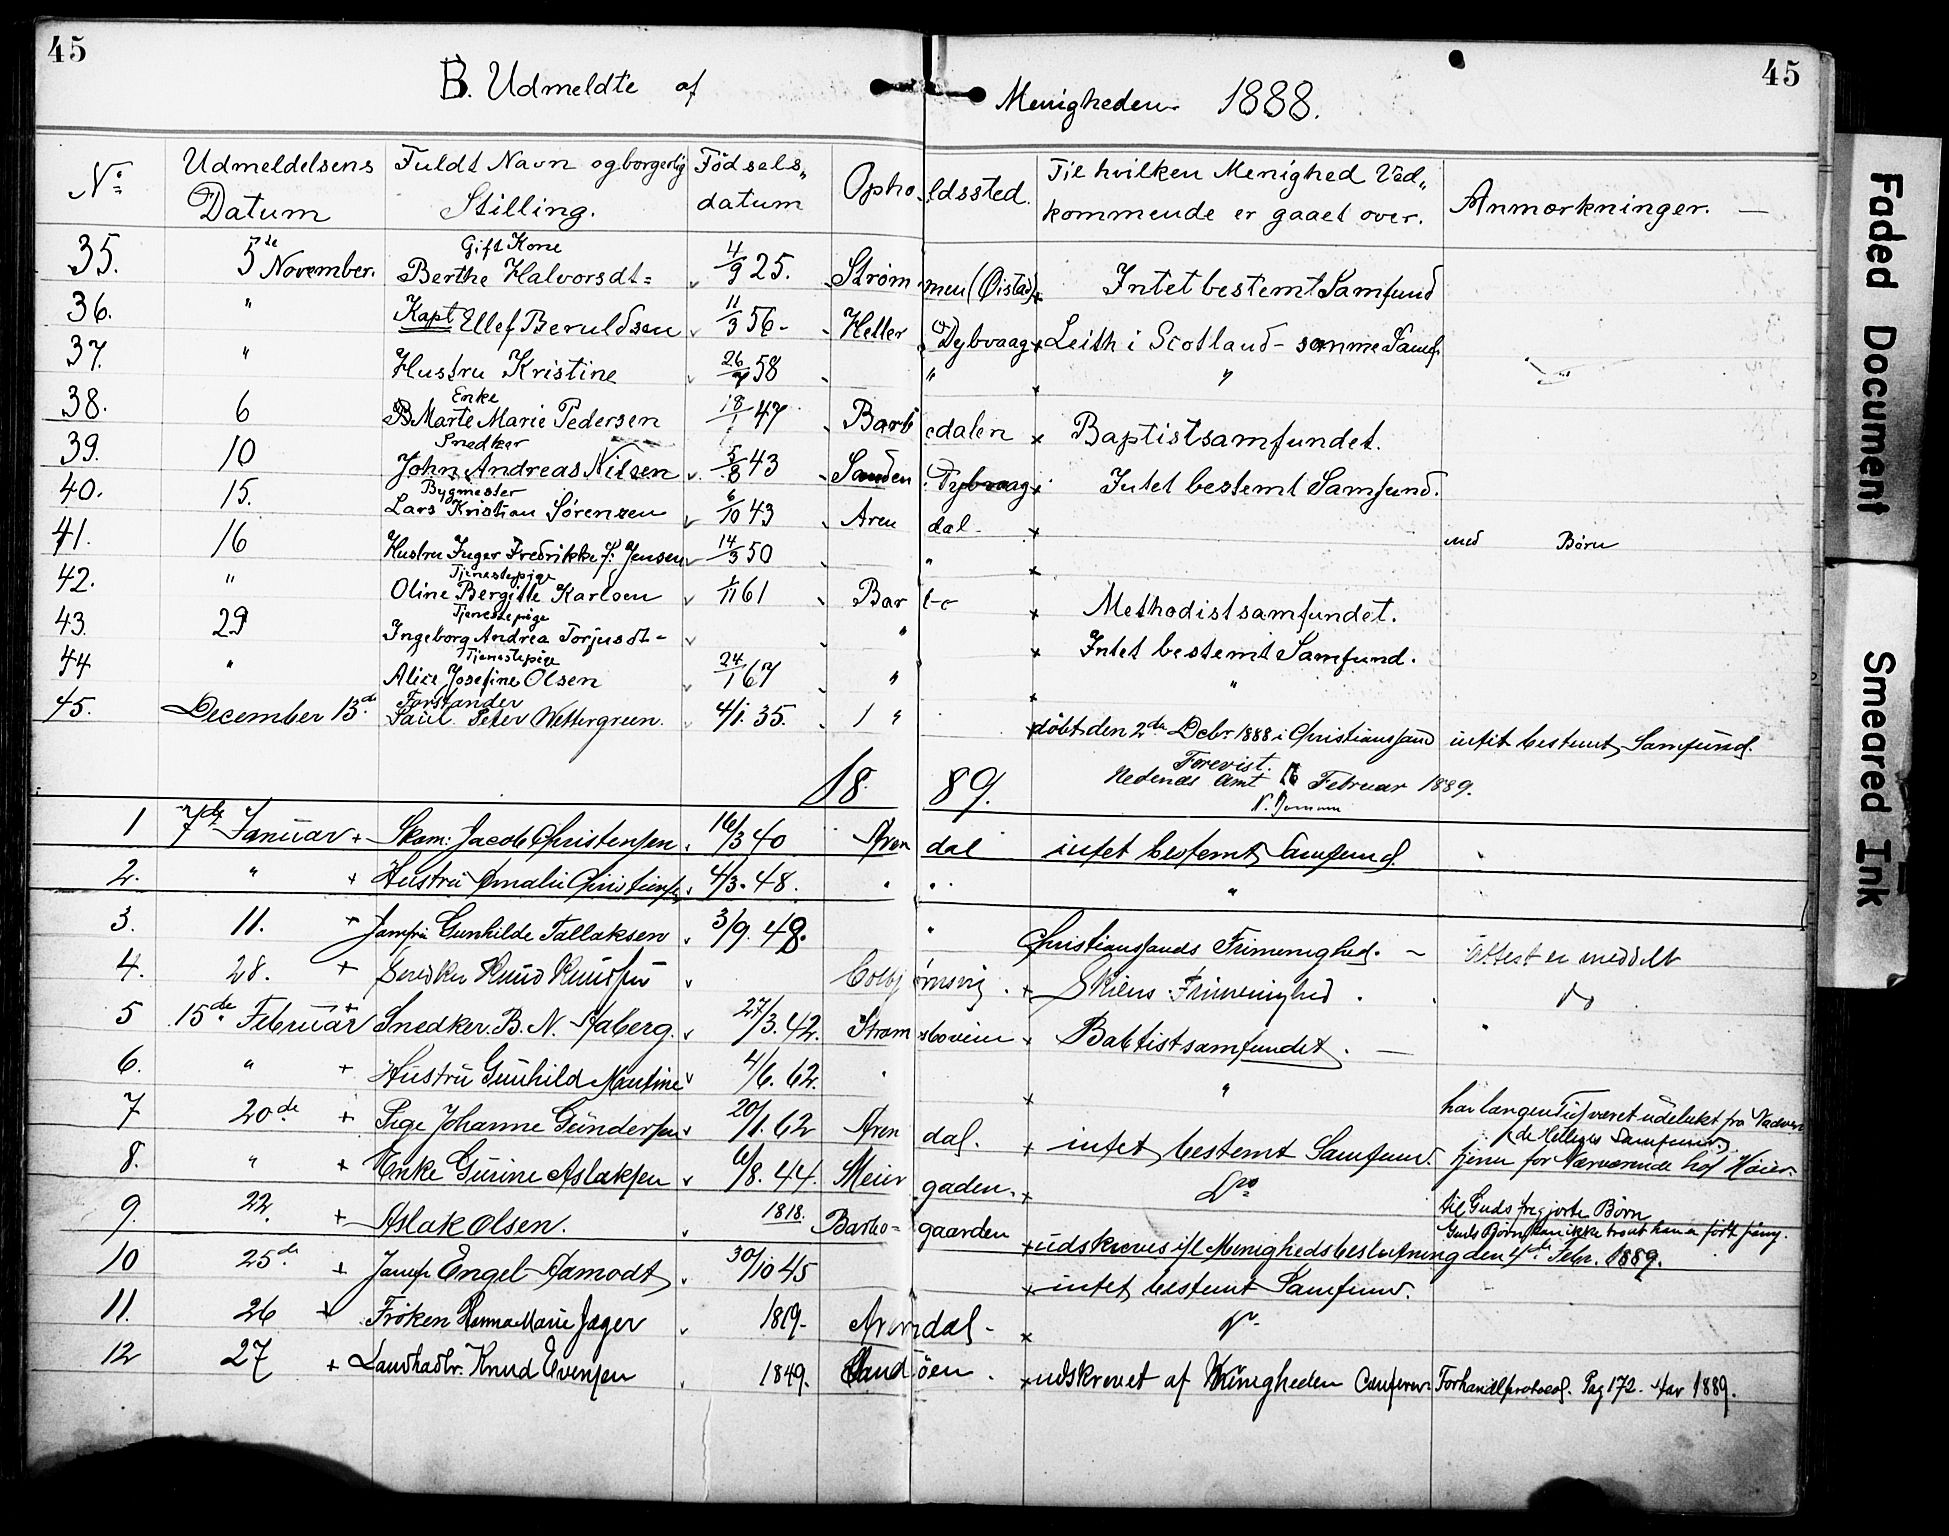 45 45
B. Udmeldte af Menigheden 1888.
No Udmeldelsens Datum Fuldt Navn og borgerlig Stilling. Fødsels„ datum Opholdssted. Til hvilken Menighed Ved„ kommende er gaaet over. Anmærkninger. —
35. 5te November. Gift Kone Berthe Halvorsdt= 4/9 25. Strømmen (Øistad) Intet bestemt Samfund
36. " Kapt Ellef Beruldsen 11/3 56- Heller Dybvaag Leith i Scotland - samme Samf.
37. " Hustru Kristine 58 " "
38. 6 Enke B Marte Marie Pedersen 18/1 47 Barbodalen Baptistsamfundet.
39. 10 Snedker John Andreas Nilsen 5/8 43 Sanden Dybvaag Intet bestemt Samfund.
40. 15. Bygmester Lars Kristian Sørensen 6/10 43 Arendal-
41. 16 Hustru Inger Fredrikke F. Jensen 14/3 50 " med Børn
42. " Tjenestepige Oline Bergitte Karlsen 1/11 61 Barbo Methodistsamfundet.
43. 29 Tjenestepige Ingeborg Andrea Torjusdt- " Intet bestemt Samfund.
44 " Tjenestepige Alice Josefine Olsen 24/1 67 " "
45. December 13de Forstander Paul Peter Wettergreen. 4/1. 35. " døbt den 2den Debr 1888 i Christianssand intet bestemt Samfund.
Forevist.
Nedenes Amt 16 Februar 1889.
1889.
1 7de Januar + Skom: Jacob Christensen 16/3 40 Arendal intet bestemt Samfund
2. " + Hustru Amalie Christensen 4/3. 48. " "
3. 11. + Jomfru Gunhilde Tallaksen 3/9. 48. " Christianssands Frimenighed. - Attest er meddelt
4. 28. + Snedker Knud Knudsen Colbjørnsvig. Skiens Frimenighed. do
5 15de Februar + Snedker B. N. Aaberg. 27/3. 42. Strømsboveien Babtistsamfundet. — "
6. " + Hustru Gunhild Martine 4/6. 62. "
7 20de + Pige Johanne Gundersen 20/1. 62 Arendal. intet bestemt Samfund. har længere Tid været udelukt fra Nadver
/de Helliges Samfund
8. " + Enke Gurine Aslaksen 6/8. 44. Meiergaden. Do tjener for Nærværende hos Høier.
9. 22. + Aslak Olsen. 1818. Barbo=gaarden udskreves ifl Menighedsbeslutning den 4de Febr. 1889.
til Guds frigjorte Børn
10 25de + Jomfr Engel Aamodt 30/10 45 intet bestemt Samfund.
11. 26 + Frøken Hanna Marie Jæger 1819- Arendal- do
12 27 + Landhadlr. Knud Evensen 1849. Sandøen. udskrevet af Menigheden Conferer Forhandlprotocol. Pag 172. Aar 1889.
Faded Document
Smeared Ink